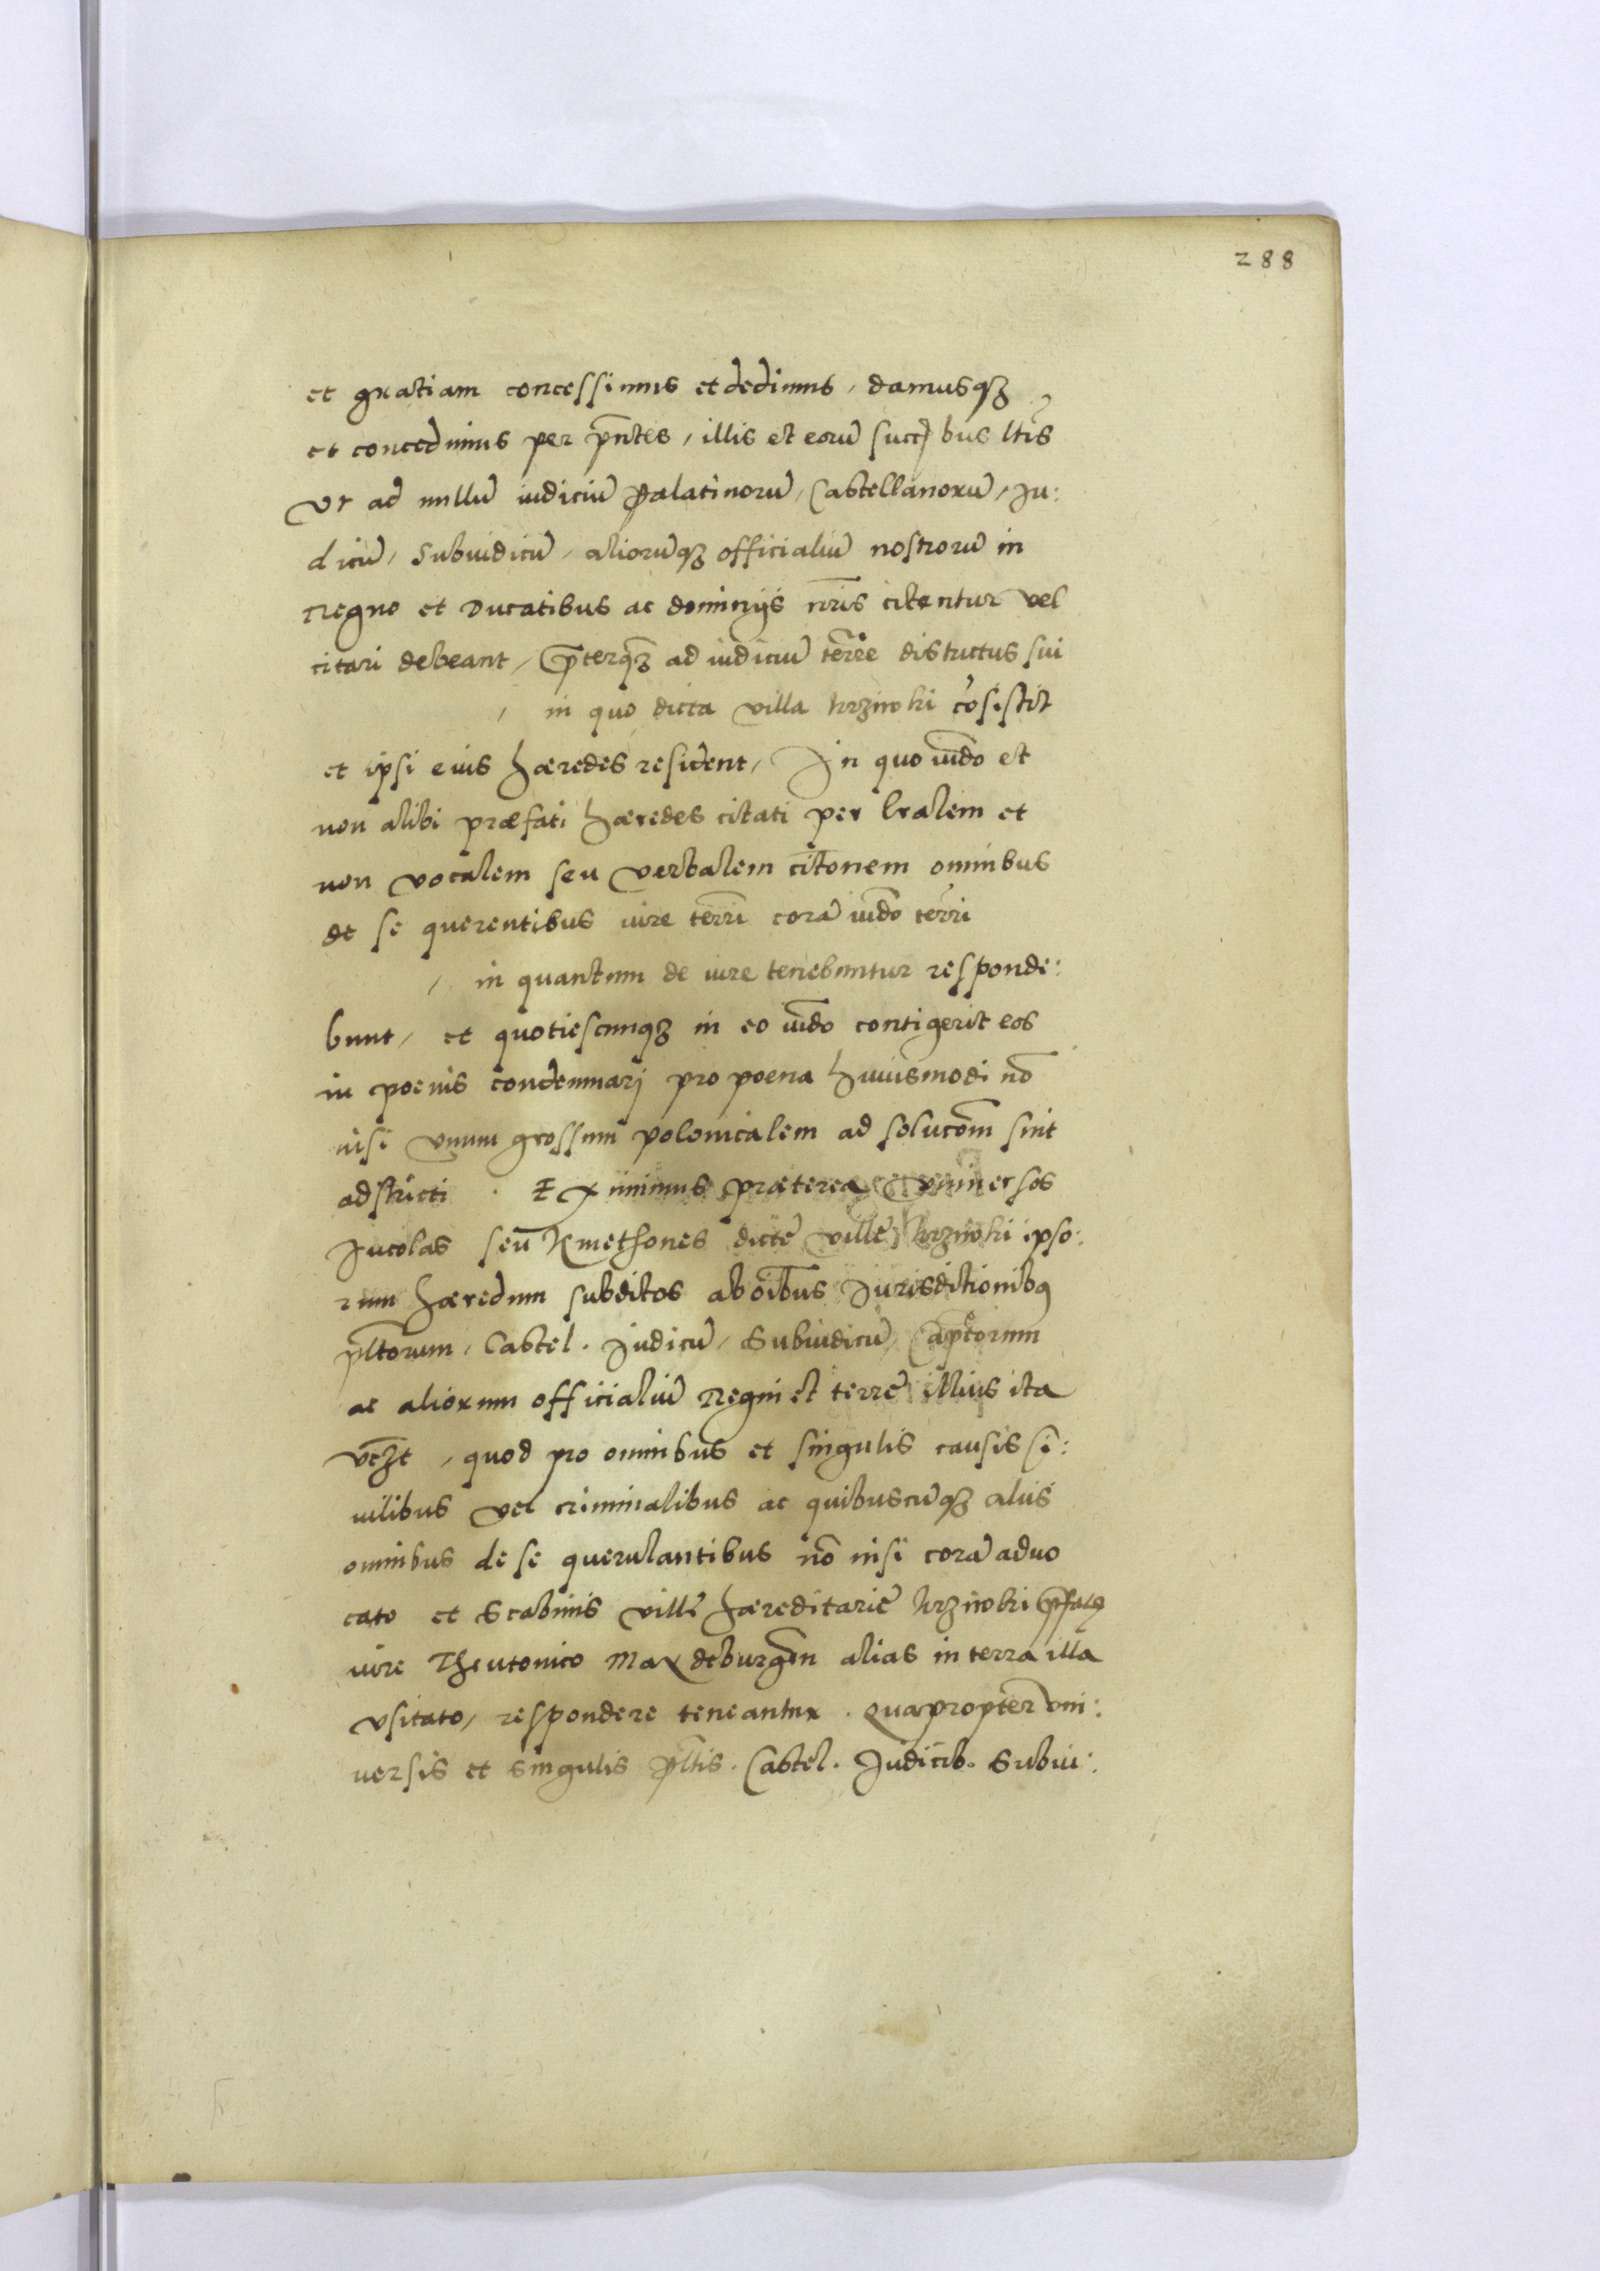 288
et gratiam concessimus et dedimus, damusqȝ
et concedimus per p̄ntes, illis et eorū succ̄bus ltīs
Vt ad nullū iudiciū Palatinorū, Castellanorū, Ju:
dicū, Subiudicū, aliorūqȝ officialiū nostrorū in
Regno et Ducatibus ac dominijs nr̄is citentur vel
citari debeant, p̄terq̄ȝ ad iudiciū terr̄e districtus sui
, in quo dicta villa krziwoki cōsistit
et ipsi eius hæredes resident, In quo iūdo et
non alibi præfati hæredes citati per lr̄alem et
non vocalem seu verbalem cit̄onem omnibus
de se querentibus iure terrī corā iūdo terrī
, in quantum de iure tenebuntur responde:
bunt, et quotiescunqȝ in eo iūdo contigerit eos
in poenis condemnarj pro poena huiusmodi nō
nisi vnum grossum polonicalem ad soluc̄om sint
adstricti. Eximimus præterea vniuersos
Jncolas seū Kmethones dictę villę krziwoki ipso:
rum hæredum subditos ab oīb̄us Jurisditionibꝯ
pl̄torum, Castel. Judicū, Subiudicū, Cap̄torum
ac aliorum officialiū Regni et terrę illius ita
vcȝt, quod pro omnibus et singulis causis si:
uilibus vel criminalibus ac quibuscūqȝ alijs
omnibus de se querulantibus nō nisi corā aduo
cato et Scabinis villę hæreditarię krziwoki p̄fatꝯ
iure Theutonico Maxdeburgēn alias in terra illa
vsitato, respondere teneantur. Quapropter vni:
uersis et singulis pl̄tis. Castel. Judicib. Subiu: